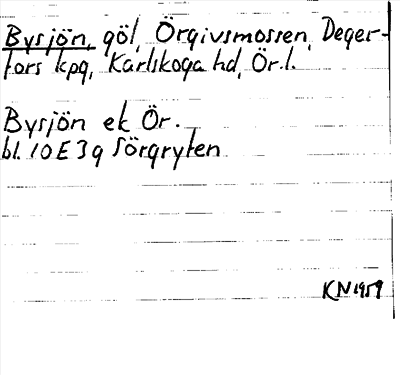 Bysjön, göl, Örgivsmossen, Deger-
fors kpg, Karlskoga hd, Ör. l.
Bysjön ek Ör.
bl. 10E 3g Sörgryten
KN 1959